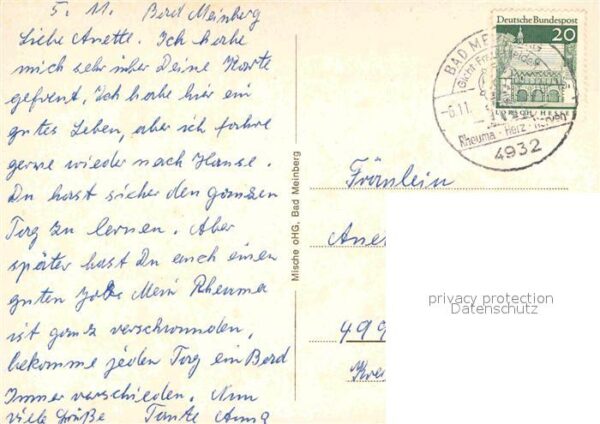 5. 11. Bad Meinberg
Liebe Anette. Ich habe
mich sehr über Deine Karte
gefreut, Ich habe hier ein
gutes Leben, aber ich fahre
gerne wieder nach Hause.
Du hast sicher den ganzen
Tag zu lernen. Aber
später hast Du auch einen
guten Job. Mein Rheuma
ist ganz verschwunden,
bekomme jeden Tag ein Bad
Immer verschieden. Nun
viele Grüße Tante Anna
Mische oHG, Bad Meinberg
Deutsche Bundespost
20
LORSCH/HESSEN
BAD ME
Rheuma - Herz - Nerven
4932
Fräulein
Ane
499
privacy protection
Datenschutz